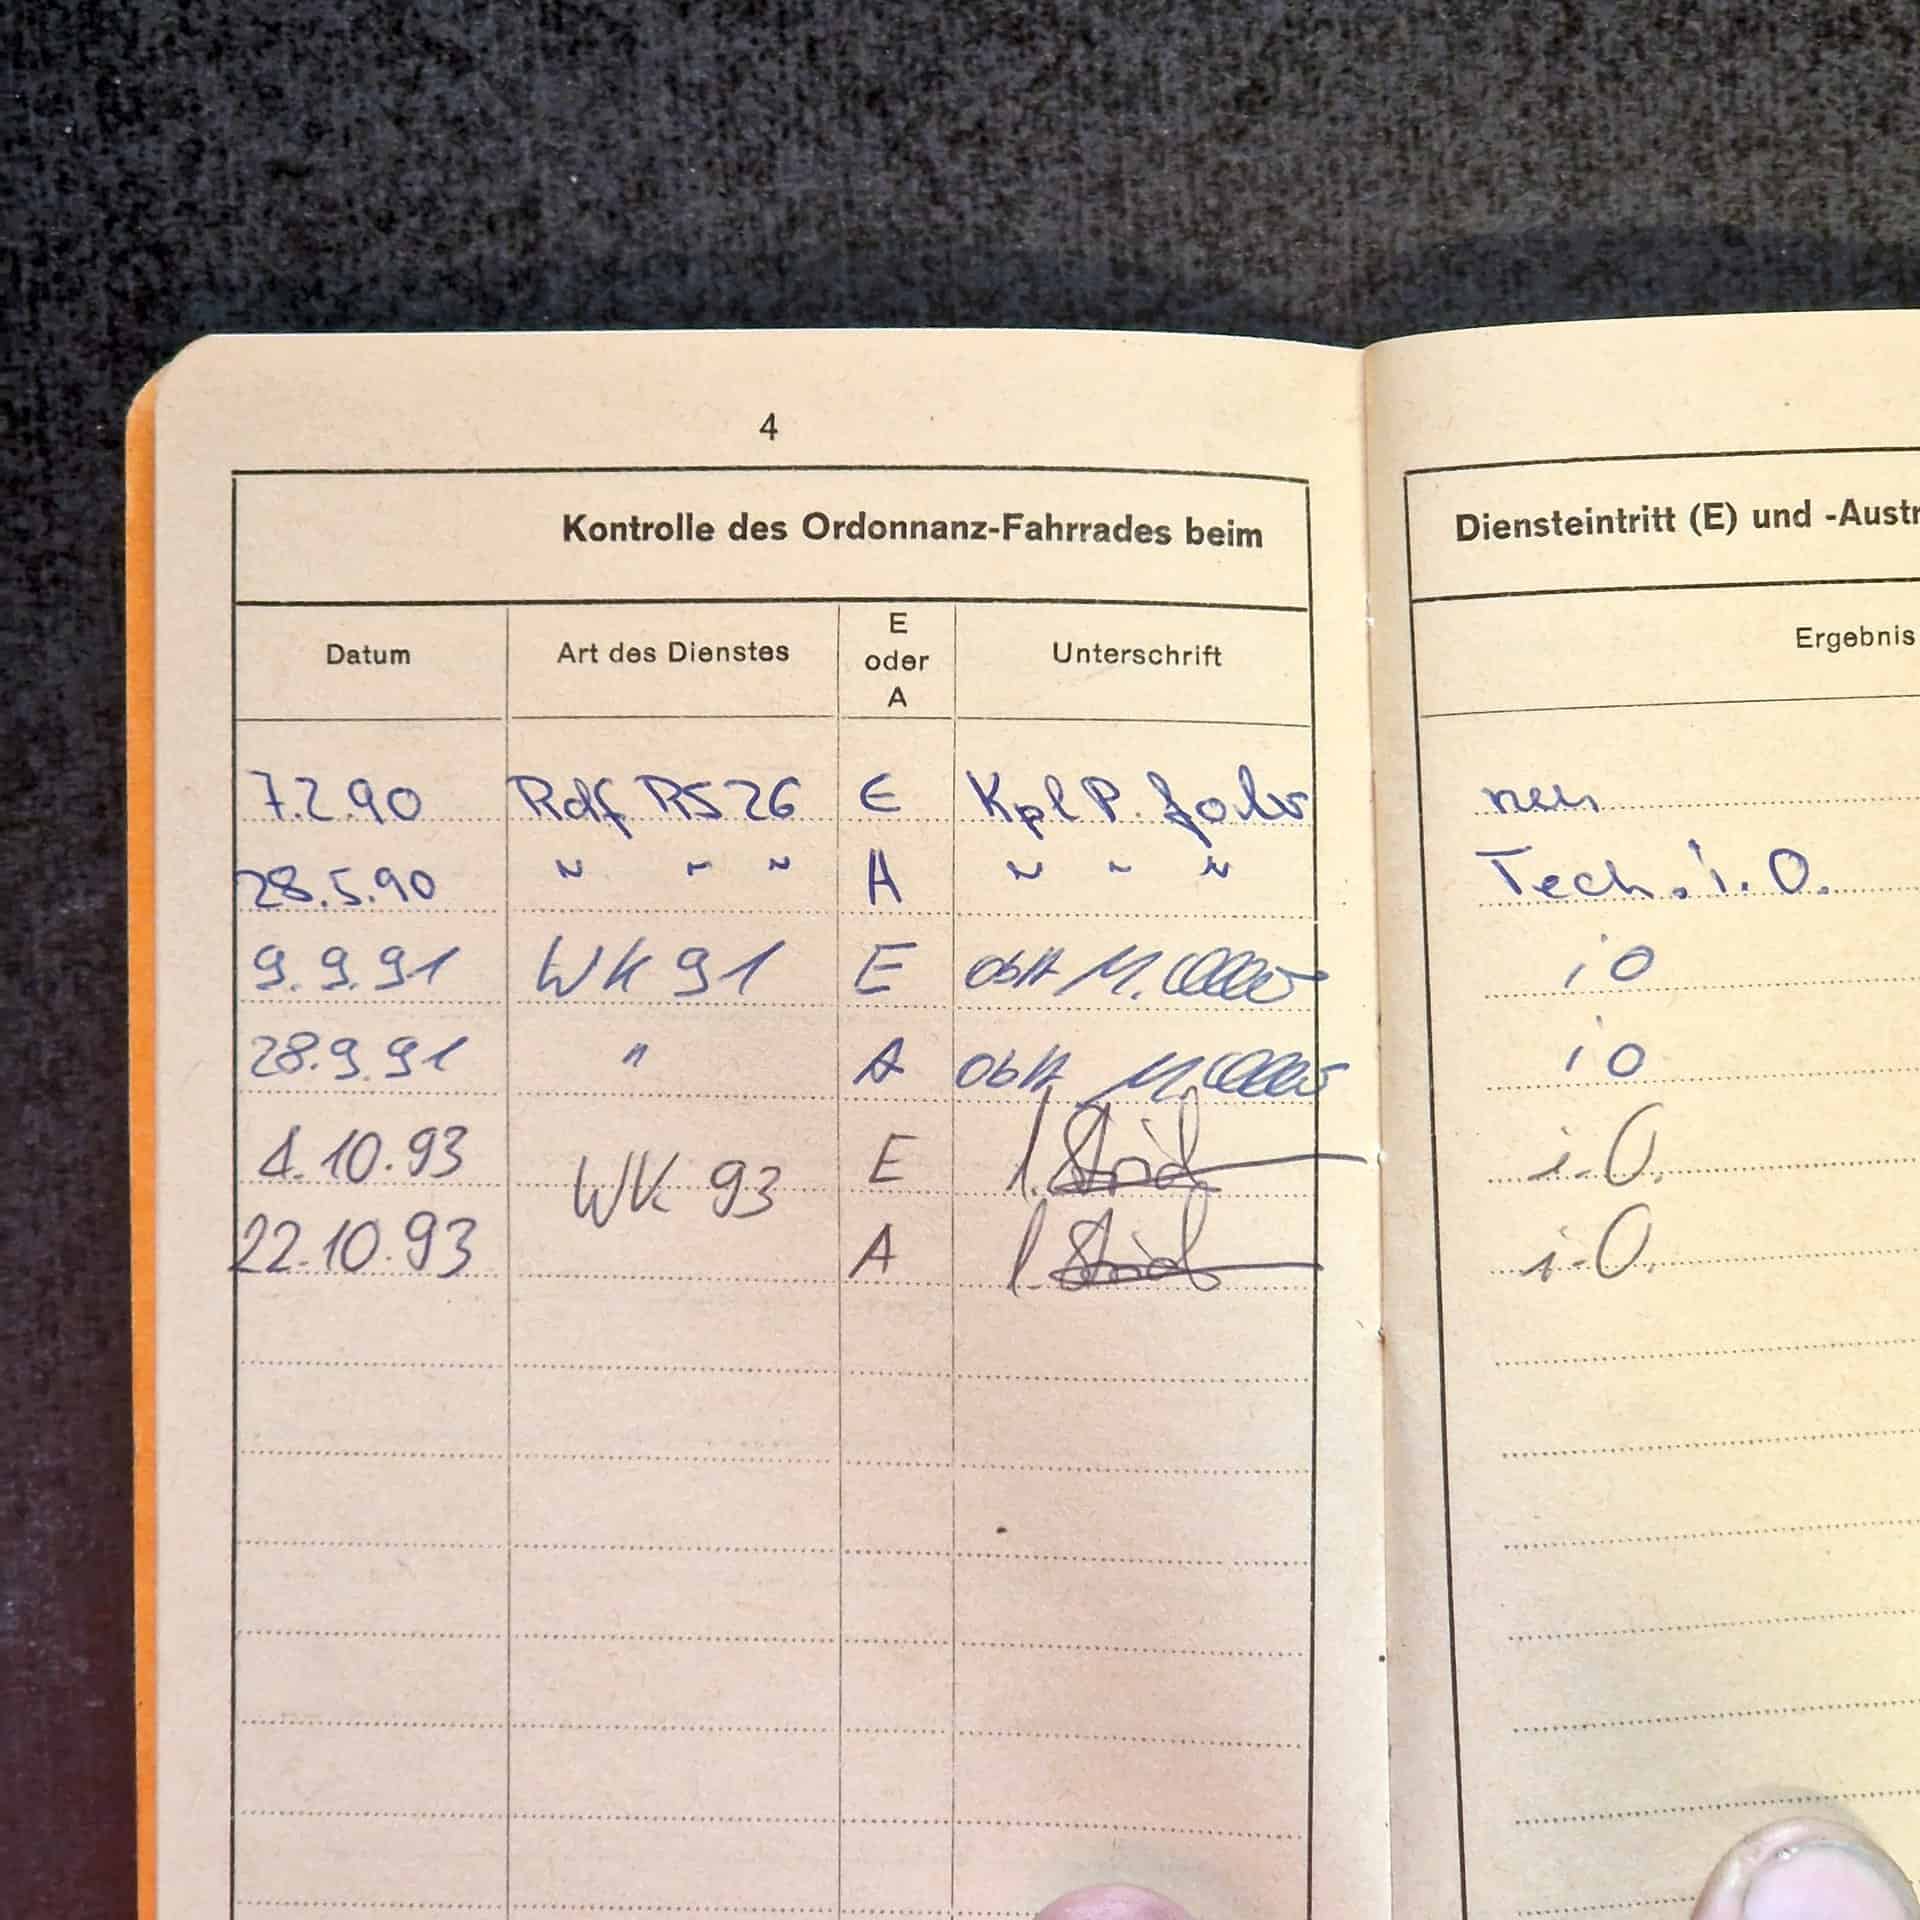 4
Kontrolle des Ordonnanz-Fahrrades beim
Datum Art des Dienstes E oder A Unterschrift
7.2.90 Rdf RS 26 E Kpl P.
28.5.90 " " " A " " "
9.9.91 WK 91 E Oblt M.
28.9.91 " A Oblt M.
4.10.93 WK 93 E
22.10.93 A
Diensteintritt (E) und -Austr
Ergebnis
neu
Tech. i. O.
i O
i O
i.O.
i.O.